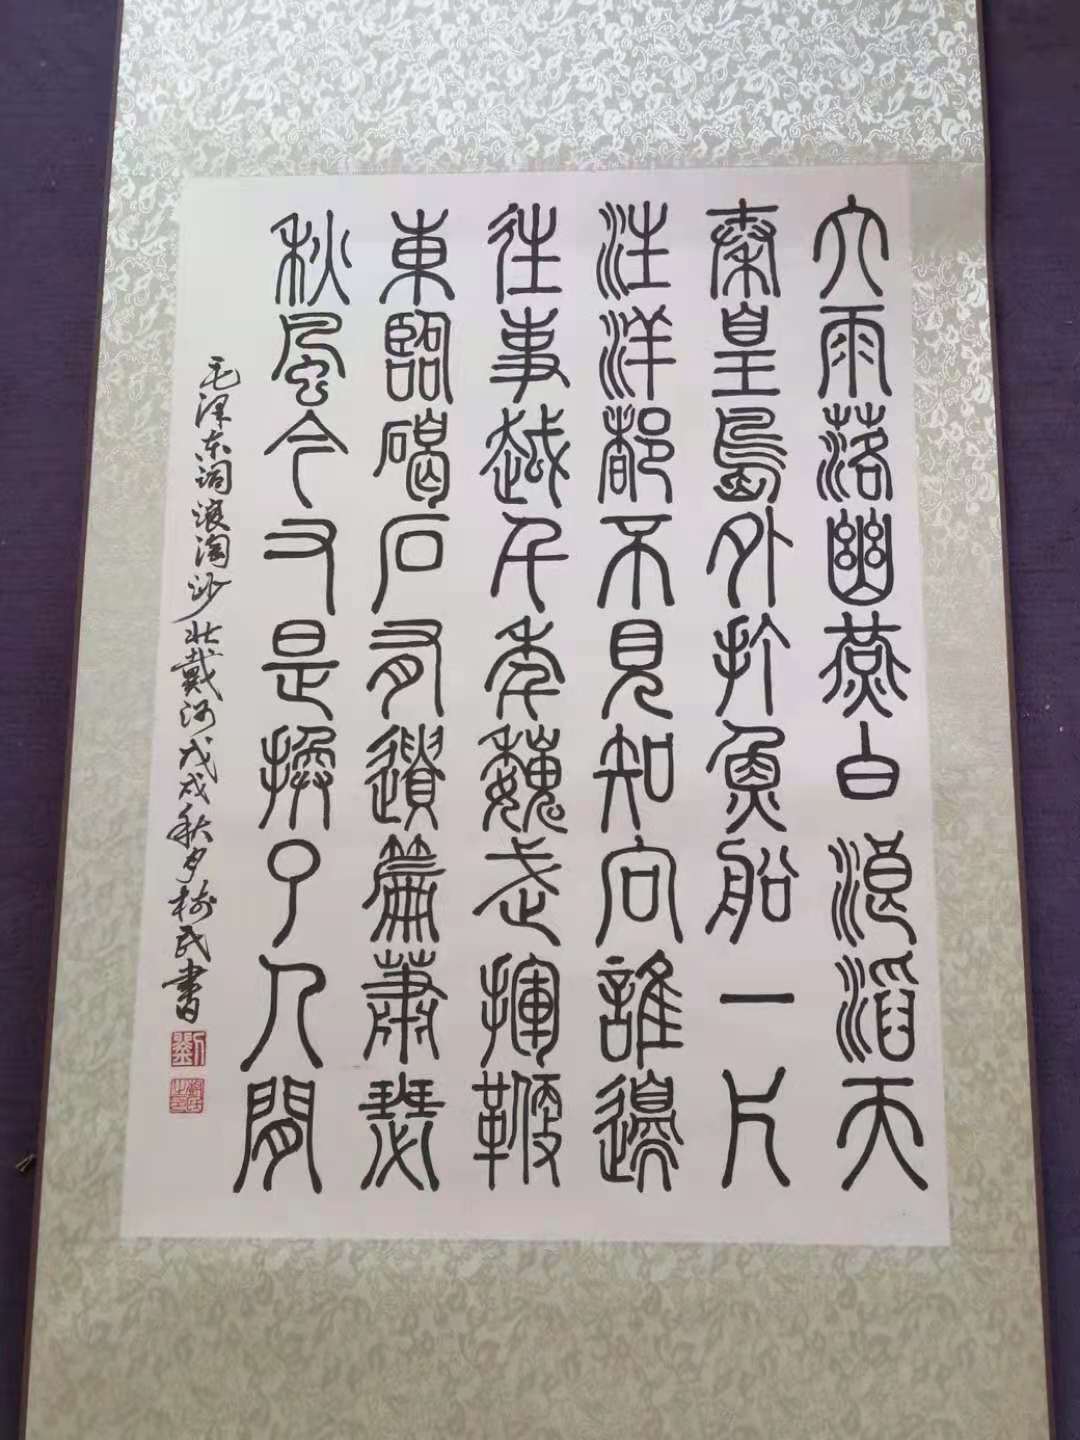 大雨落幽燕白浪滔天
秦皇島外打魚船一片
汪洋都不見知向誰邊
往事越千年魏武揮鞭
東臨碣石有遺篇蕭瑟
秋風今又是換了人間
毛泽东词浪淘沙北戴河戊戌秋月树民書
劉